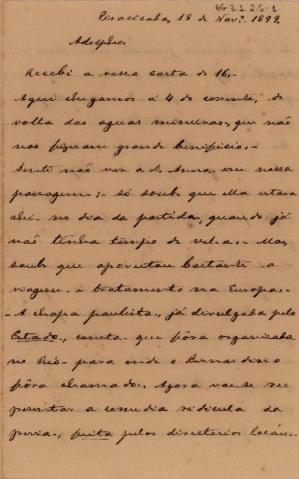 GG 21.2.5-1
Piracicaba, 18 de Nov.º 1899.
Adolpho.
Recebi a vossa carta de 16.-
Aqui chegamos a 4 do corrente, de
volta das aguas mineiras, que não
nos fizeram grande beneficio.-
Senti não ver a d. Anna em nossa
passagem; - só soube que ella estava
ahi no dia da partida, quando já
não tinha tempo de vel-a.- Mas,
soube que aproveitou bastante a
viagem e tratamento na Europa.-
- A chapa paulista, já divulgada pelo
Estado, consta que fôra organizada
no Rio - para onde o Bernardino
fôra chamado. Agora vae se re
presentar a comedia ridicula da
previa, feita pelos directorios locáes.-